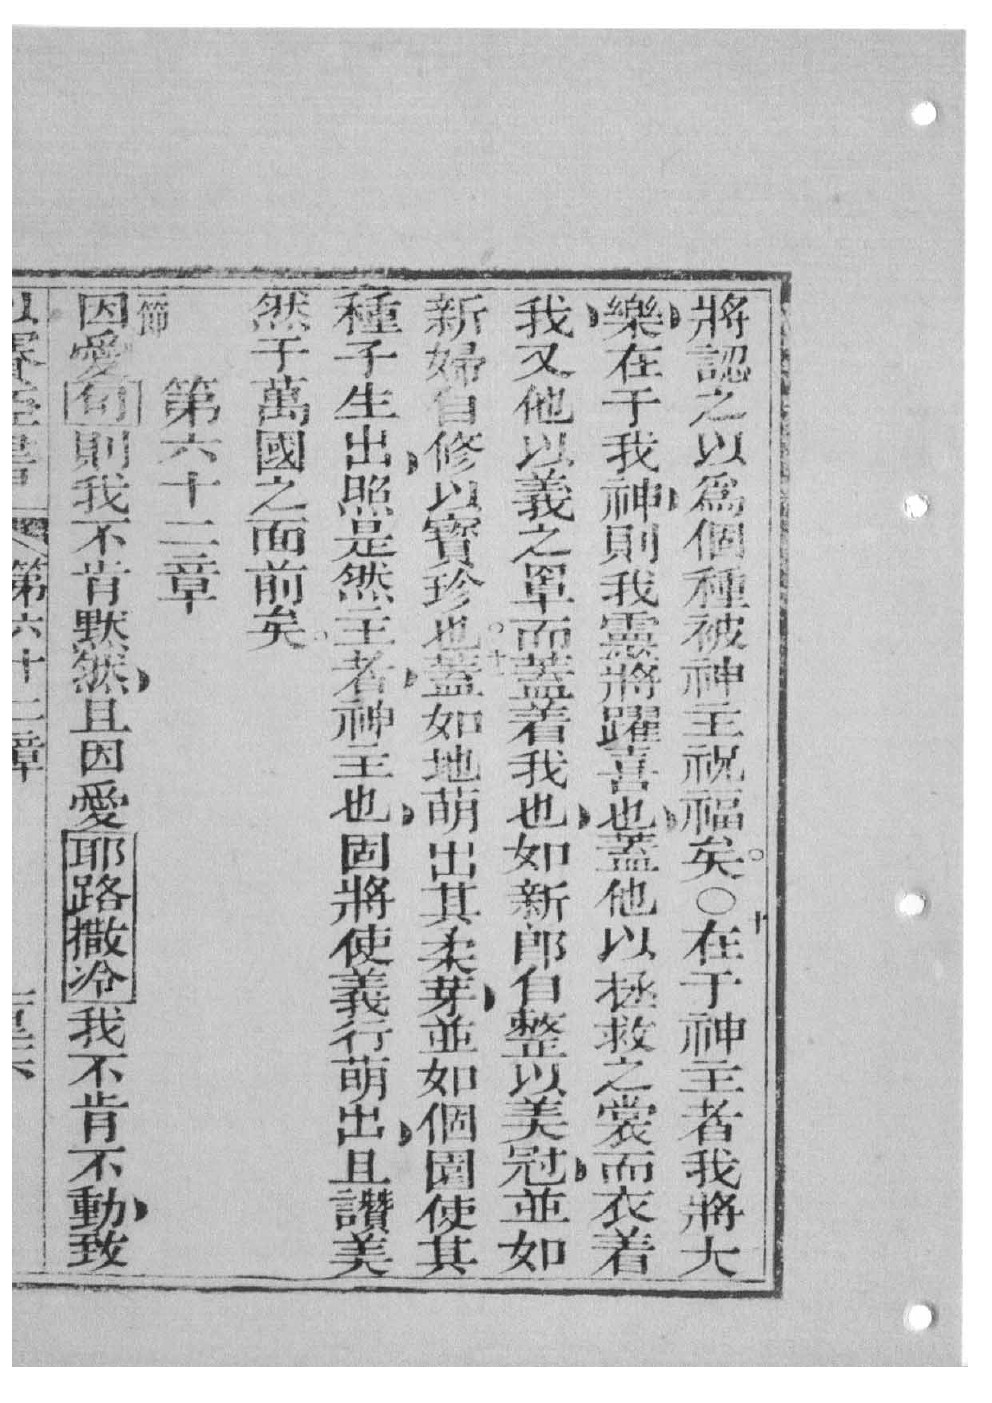 將認之以爲個種被神主祝福矣。○十在于神主者我將大
樂在于我神則我靈將躍喜也蓋他以拯救之裳而衣着
我又他以義之罩而蓋着我也如新郎自整以美冠並如
新婦自修以寶珍也。十一蓋如地萌出其柔芽並如個園使其
種子生出照是然主者神主也固將使義行萌出且讚美
然于萬國之面前矣。
第六十二章
一節因愛旬則我不肯默然且因愛耶路撒冷我不肯不動致
第六十二章